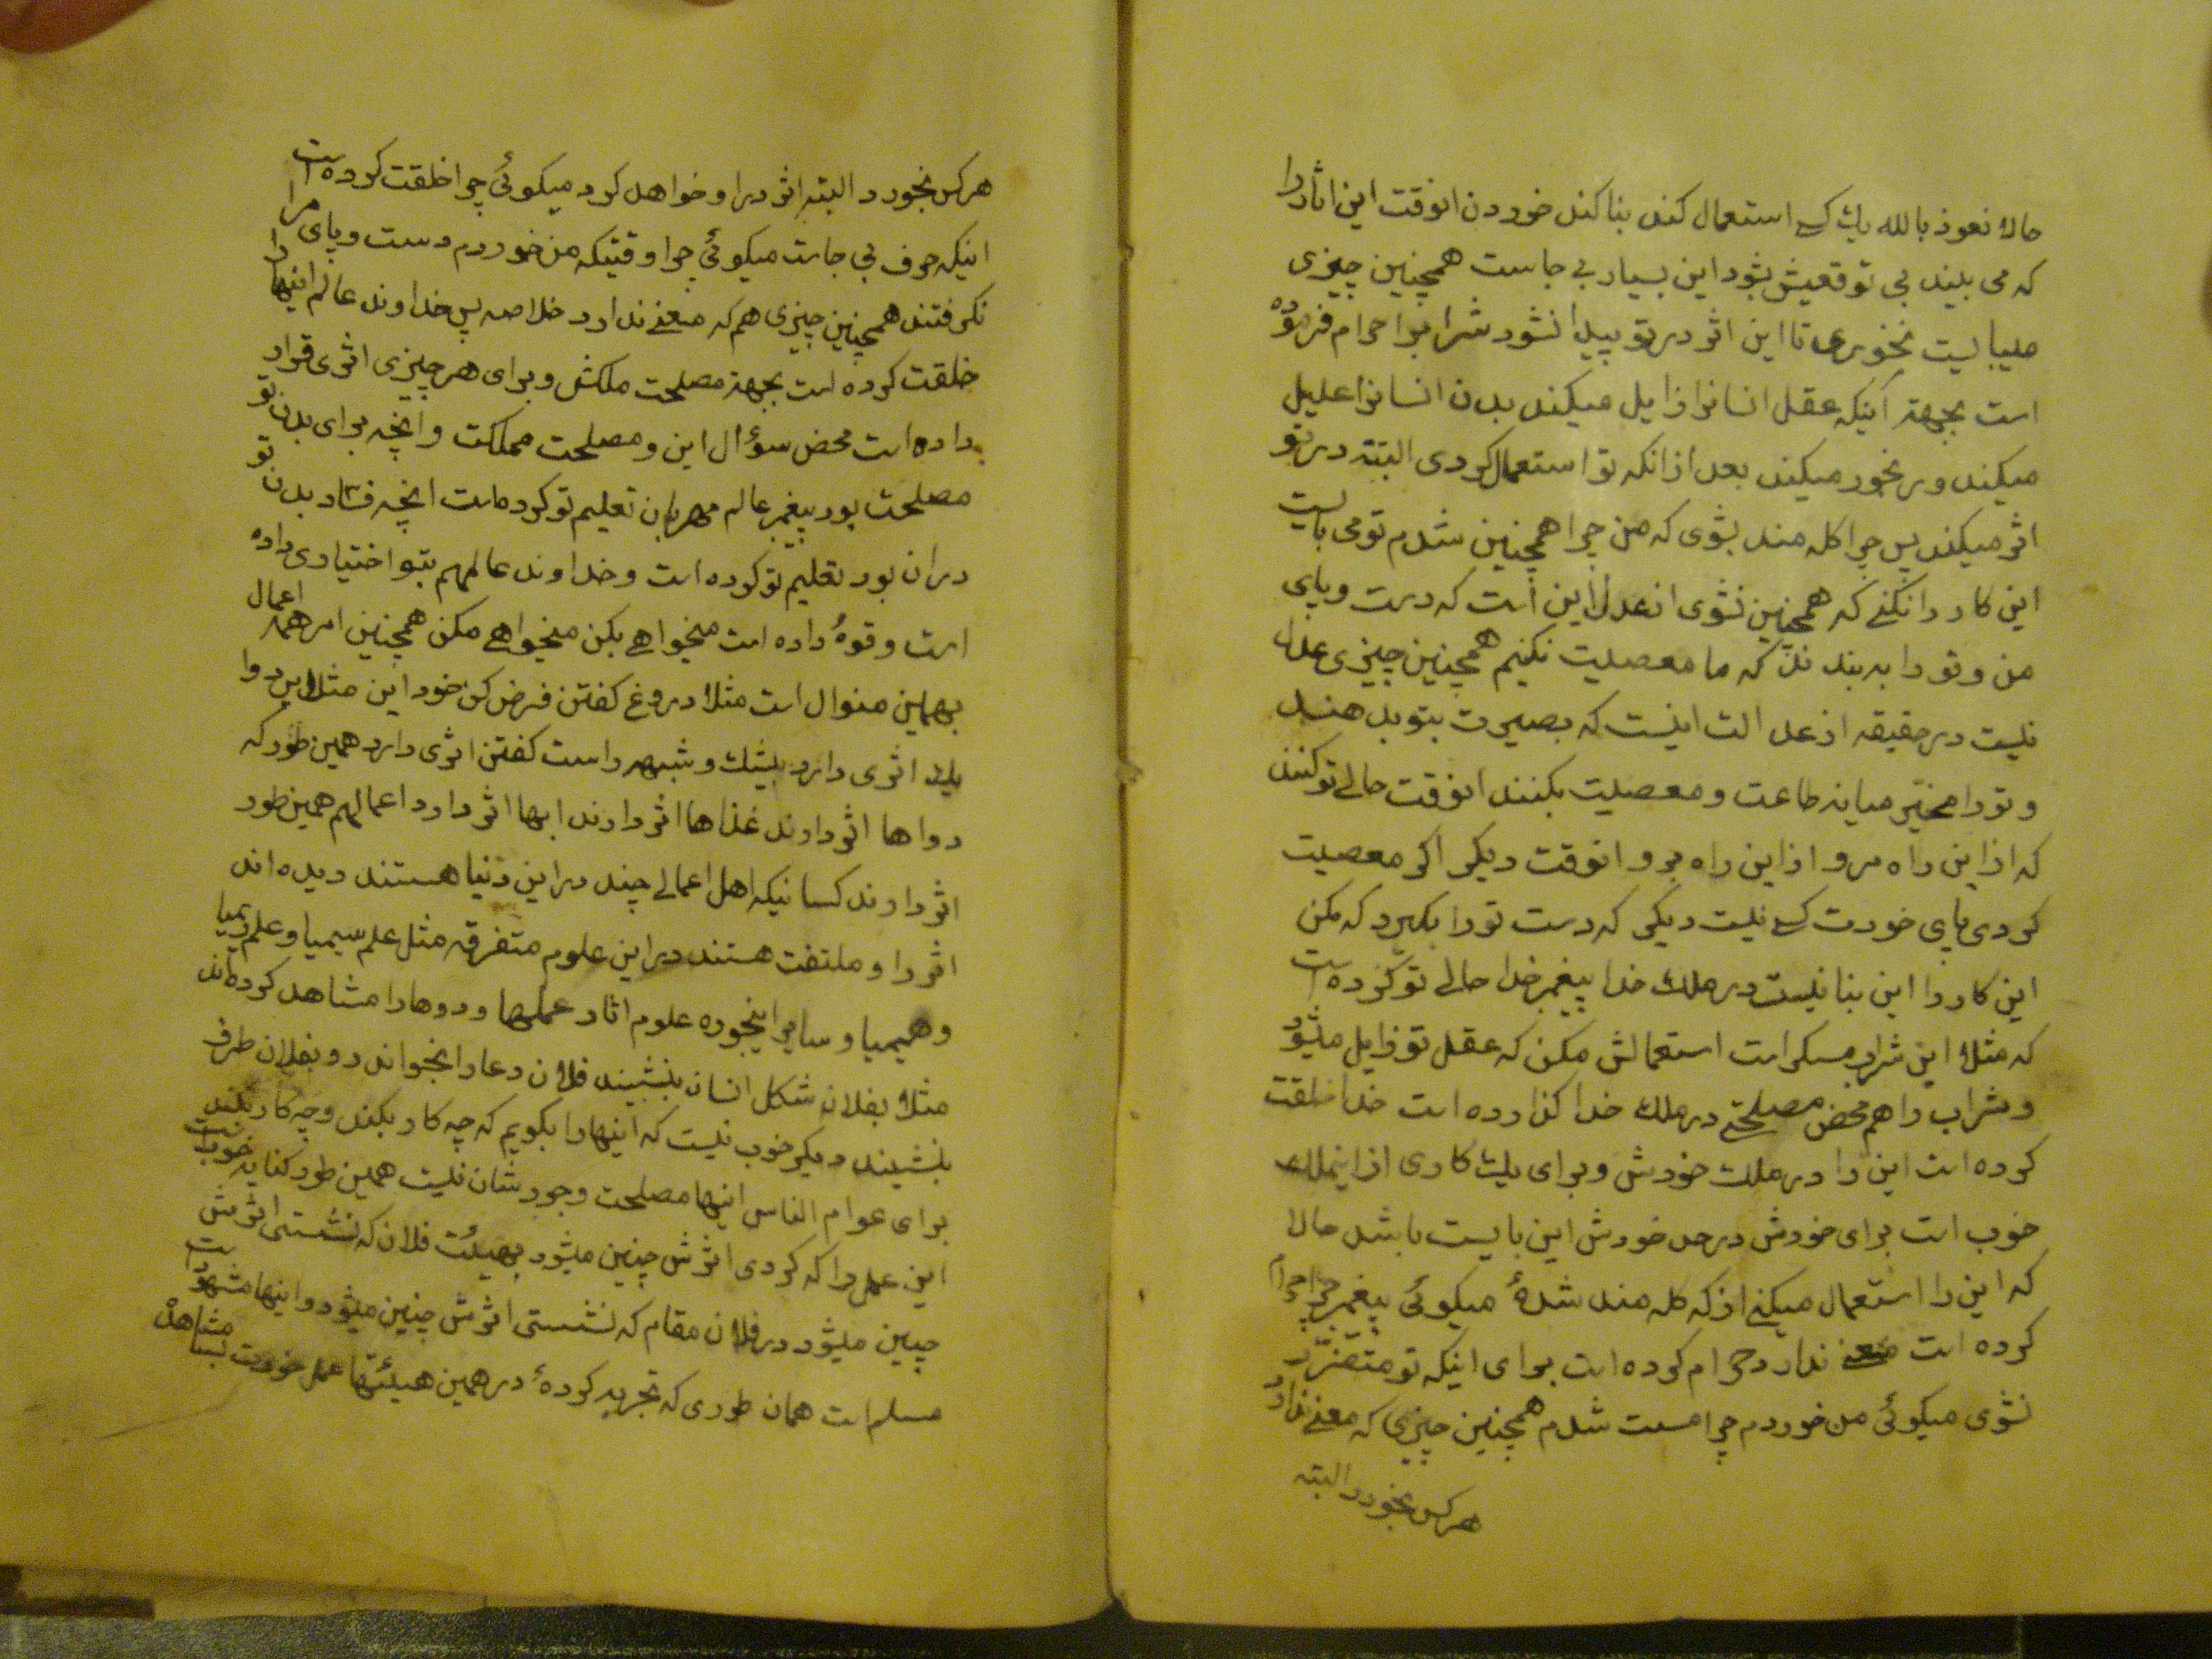 حالا نعوذ بالله یک کسے استعمال کند بنا کند خوردن انوقت این اثار را
که می بیند بی توقعیش بشود این بسیار بے جاست همچنین چیزی
میبایست نخوری تا این اثر در تو پیدا نشود شراب را حرام فرموده
است بجهة آنیکه عقل انسانرا زایل میکند بدن انسانرا علیل
میکند و رنجور میکند بعد از انکه تو استعمال کردی البته در تو
اثر میکند پس چرا کله مند بشوی که من چرا همچنین شدم تو می بایست
این کار را نکنے که همچنین نشوی از عدل این است که دست و پای
من و تو را به بندند که ما معصیت نکنیم همچنین چیزی عدل
نیست در حقیقه از عدالت اینست که بصیرت بتو بدهند
و تو را مخیّر میانه طاعت و معصیت بکنند انوقت حالے تو کنند
که از این راه مرو از این راه برو انوقت دیکر اکر معصیت
کردی پای خودت کسے نیست دیکر که دست تو را بکیرد که مکن
این کار را این بنا نیست در ملک خدا پیغمبر خدا حالے تو کرده است
که مثلا این شراب مسکر است استعمالش مکن که عقل تو زایل میشود
و شراب را هم محض مصلحتے در ملک خدا کذارده است خدا خلقت
کرده است این را در ملک خودش و برای یک کاری از اینملک
خوب است برای خودش در حد خودش این بایست باشد حالا
که این را استعمال میکنے از که کله مند شدهٔ میکوئی پیغمبر چرا حرام
کرده است معنے ندارد حرام کرده است برای اینکه تو متضرّر
نشوی میکوئی من خوردم چرا مست شدم همچنین چیزی که معنے ندارد
هرکس بخورد البته
هرکس بخورد البته اثر در او خواهد کرد میکوئی چرا خلقت کرده است
اینکه حرف بی جاست میکوئی چرا وقتیکه من خوردم دست و پای مرا
نکرفتند همچنین چیزی هم که معنے ندارد خلاصه پس خداوند عالم اینها را
خلقت کرده است بجهة مصلحت ملکش و برای هر چیزی اثری قرار
داده است محض سؤال این و مصلحت مملکت و انچه برای بدن تو
مصلحت بود پیغمبر عالم مهربان تعلیم تو کرده است انچه فساد بدن تو
در ان بود تعلیم تو کرده است و خداوند عالمهم بتو اختیاری داده
است و قوهٔ داده است میخواهے بکن میخواهے مکن همچنین امر همه اعمال
بهمین منوال است مثلا دروغ کفتن فرض کن خود این مثل این دوا
یک اثری دارد بیشک و شبهه راست کفتن اثری دارد همین طور که
دواها اثر دارند غذاها اثر دارند ابها اثر دارد اعمالهم همین طور
اثر دارند کسانیکه اهل اعمالے چند در این دنیا هستند دیده اند
اثر را و ملتفت هستند در این علوم متفرقه مثل علم سیمیا و علم ریمیا
و هیمیا و سایر اینجوره علوم اثار عملها و دوها را مشاهد کرده اند
مثلا بفلان شکل انسان بنشیند فلان دعا را بخواند رو بفلان طرف
بنشیند دیکر خوب نیست که اینها را بکویم که چه کار بکند و چه کار نکند
برای عوام الناس اینها مصلحت وجودشان نیست همین طور کنایه خوب است
این عمل را که کردی اثرش چنین میشود بهیئت فلان که نشستی اثرش
چنین میشود در فلان مقام که نشستی اثرش چنین میشود و اینها مشهود است
مسلم است همان طوری که تجربه کردهٔ در همین هیئتها عمل خودت مشاهد